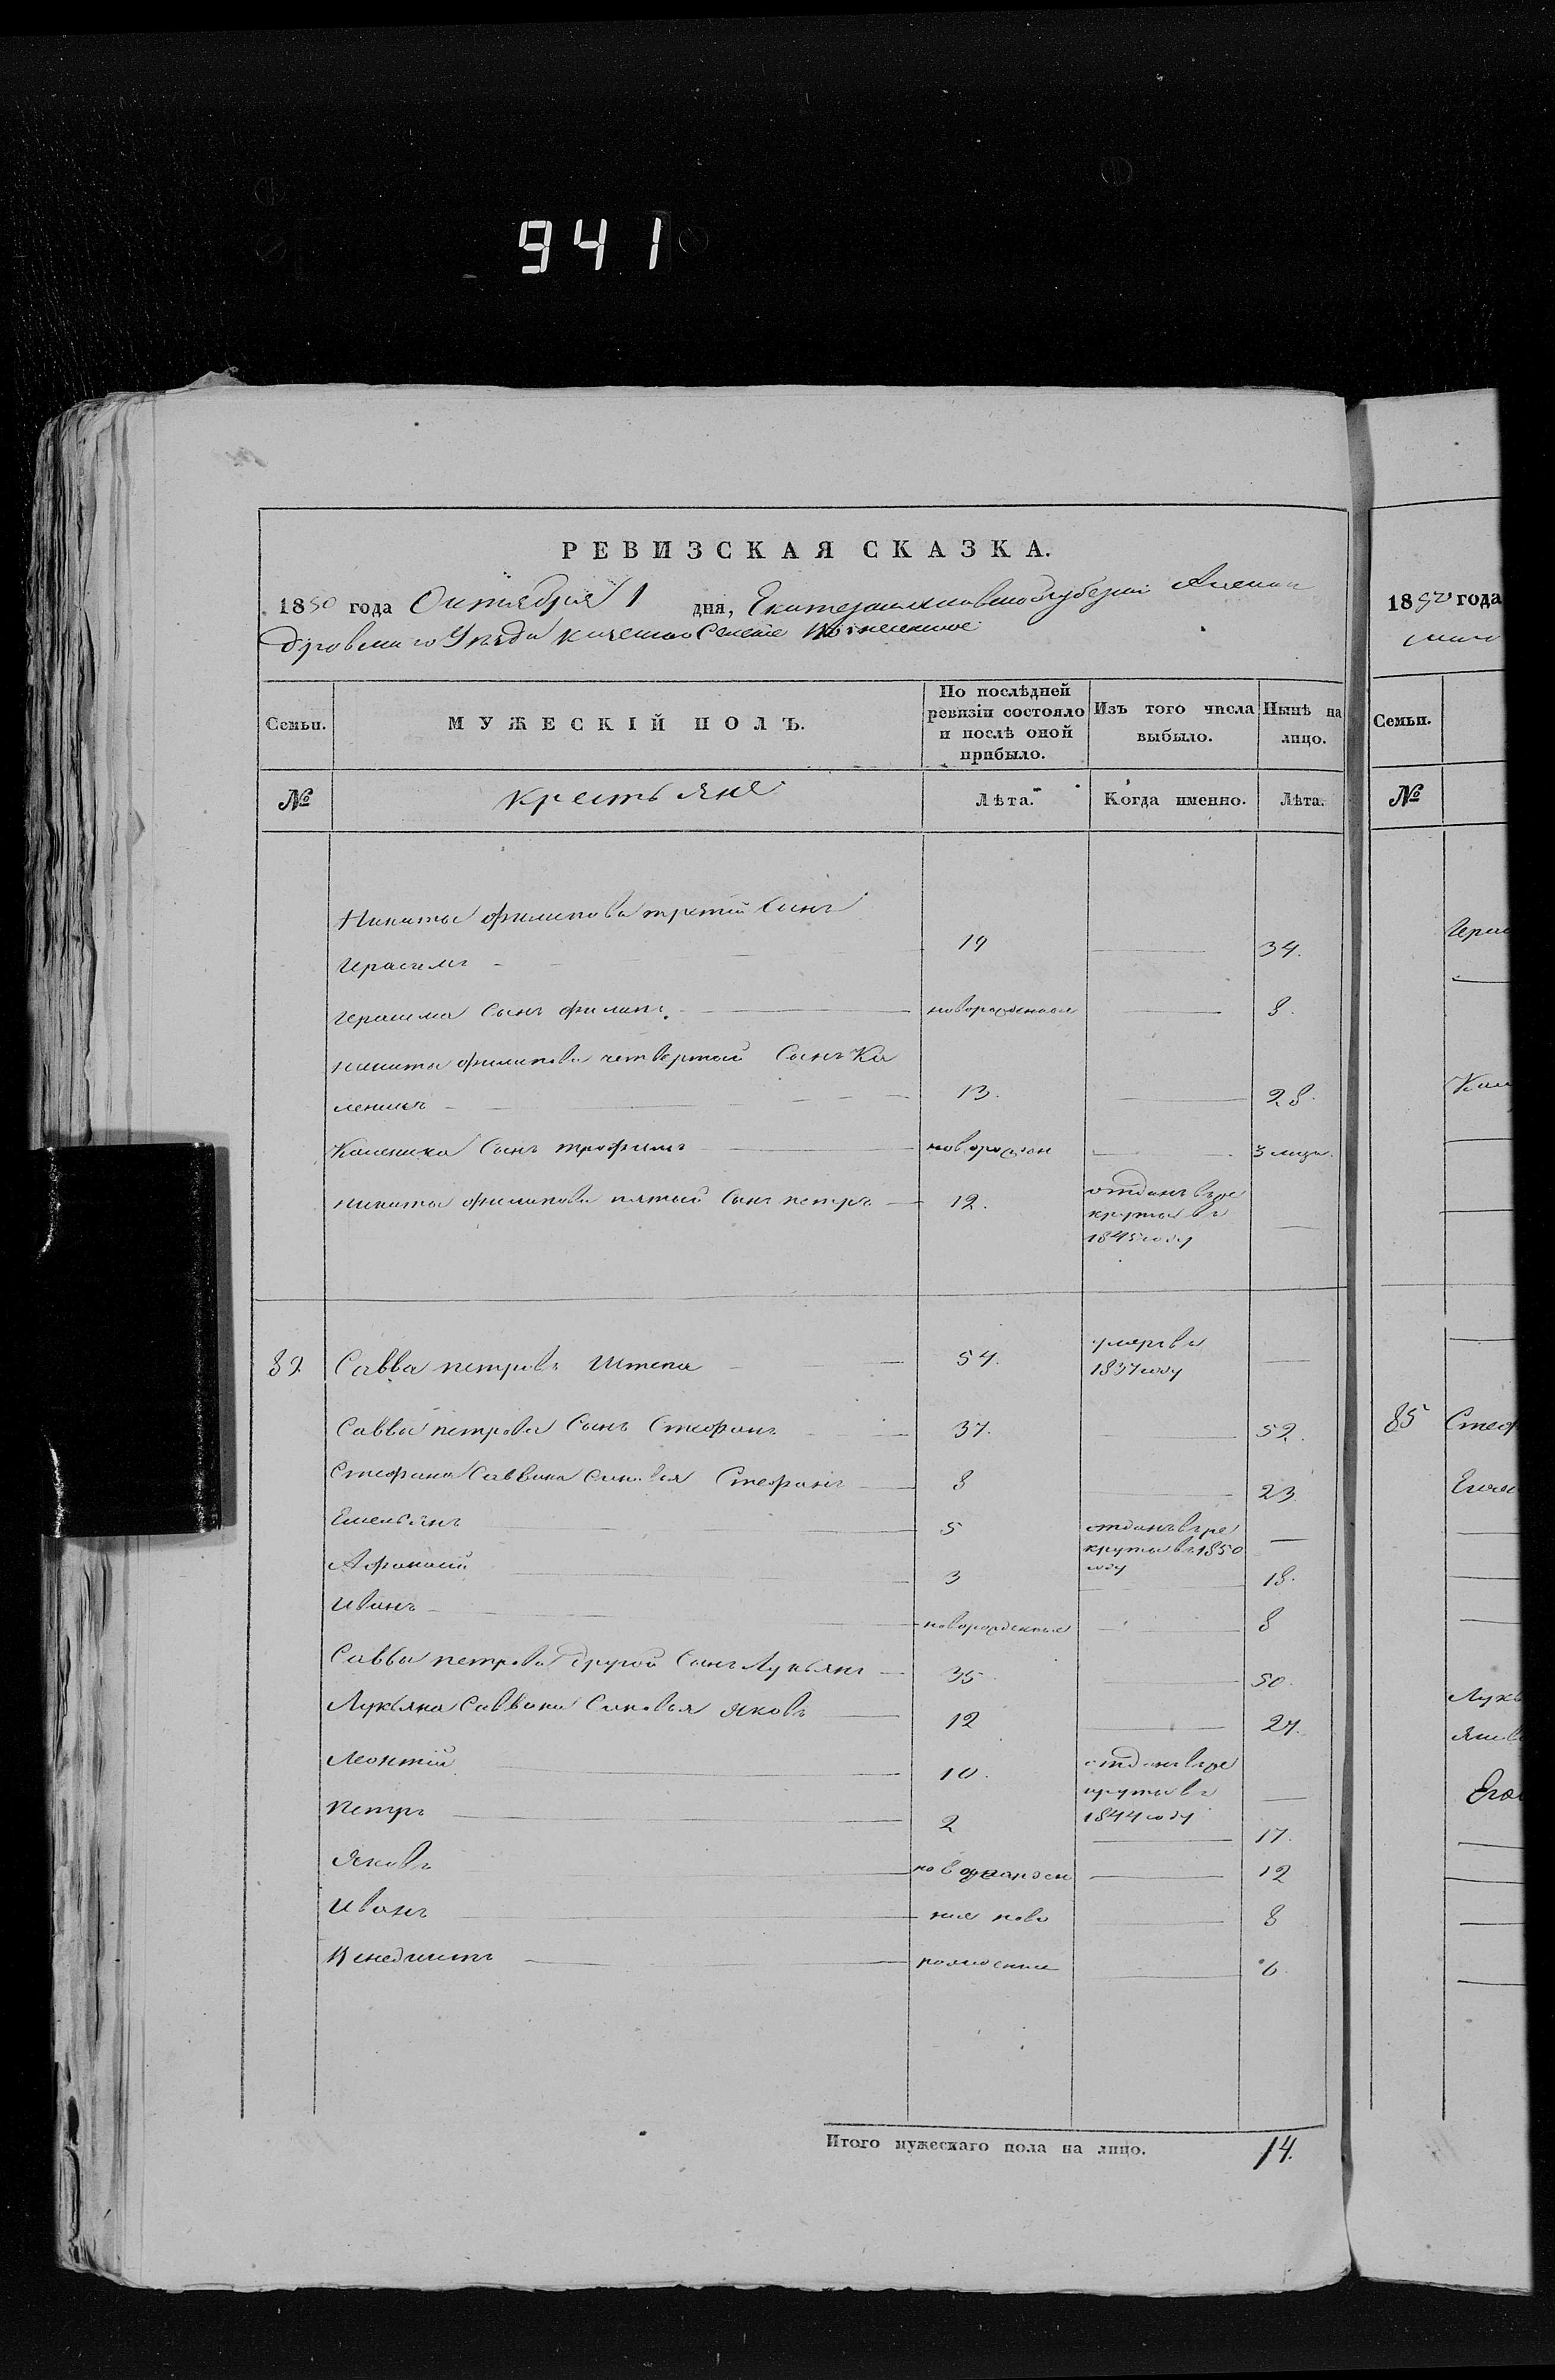 941
РЕВИЗСКАЯ СКАЗКА.
1850 года Октября 1 дня, Екатеринославской губернии Алексан
дровскаго Уезда казенное Селение Вознесенское
Семьи. МУЖЕСКІЙ ПОЛЪ. По послѣдней ревизіи состояло и послѣ оной прибыло. Изъ того числа выбыло. Нынѣ на лицо.
№ крестьяне Лѣта. Когда именно. Лѣта.
Никиты филипова третій Сынъ
Герасимъ 19 34.
Герасима Сынъ филипъ новорожденный 8.
никиты филипова четвертый Сынъ Ка
леникъ 13. 28.
Каленика Сынъ трофимъ новорожден 3 меся.
никиты филипова пятый Сынъ петръ 12. отданъ въ ре
круты въ
1845 году
82. Савва петровъ Штепа 54. умеръ въ
1837 году
Саввы петрова Сынъ Стефанъ 37. 52.
Стефана Саввина Сыновья Стефанъ 8 23
Емельянъ 5 отданъ въ ре
круты въ 1850
году
Афанасій 3 18.
Иванъ новорожденный 8
Саввы петрова другой Сынъ Лукьянъ 35 50.
Лукьяна Саввина Сыновья Яковъ 12 27.
Леонтій 10. отданъ въ ре
круты въ
1844 году
Петръ 2 17.
Яковъ 12
Иванъ 8
Венедиктъ 6
Итого мужескаго пола на лицо. 14.
1850 года
Семьи.
№
85 Стеф